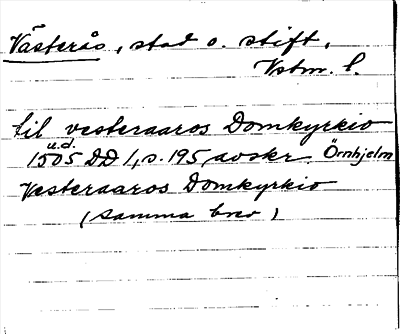 Västerås, stad o. stift,
Vstm. l.
til vesteraaros Domkyrkio
u.d.
1505 DD 1, s. 195, avskr. Örnhjelm
Vesteraaros Domkyrkio
(samma brev)